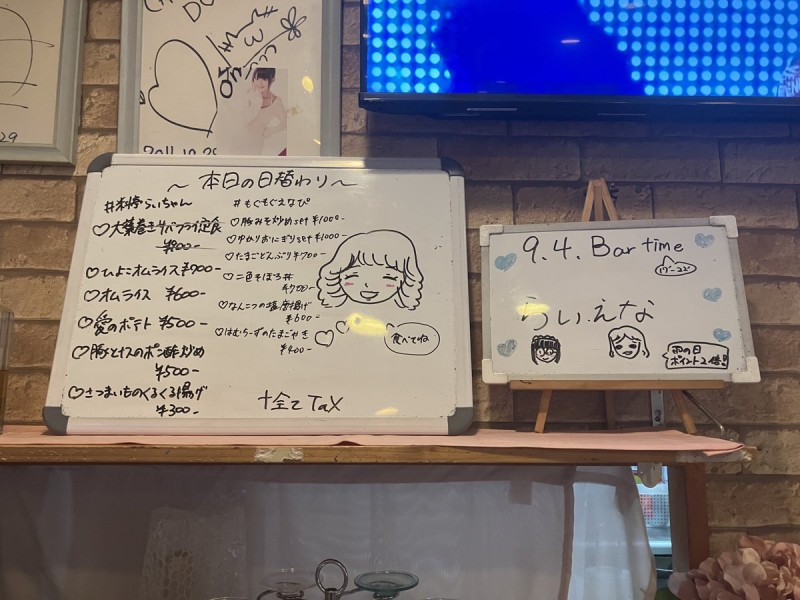 2011.10.28
～本日の日替わり～
#本格らいちゃん
♡大葉巻きサバフライ定食
¥800-
♡ひよこオムライス ¥700-
♡オムライス ¥600-
♡愛のポテト ¥500-
♡豚とナスのポン酢炒め
¥500-
♡さつまいものくるくる揚げ
¥300-
#もぐもぐえなぴ
♡豚みそ炒めset ¥1000-
♡ゆかりおにぎりset ¥1000-
♡たまごとんぶり ¥700-
♡二色そぼろ丼
¥700-
♡なんこつの塩唐揚げ
¥600-
♡はむらーずのたまごやき
¥400-
食べてね
+全てTaX
9.4. Bar time
17-22
らい.えな
雨の日
ポイント2倍!